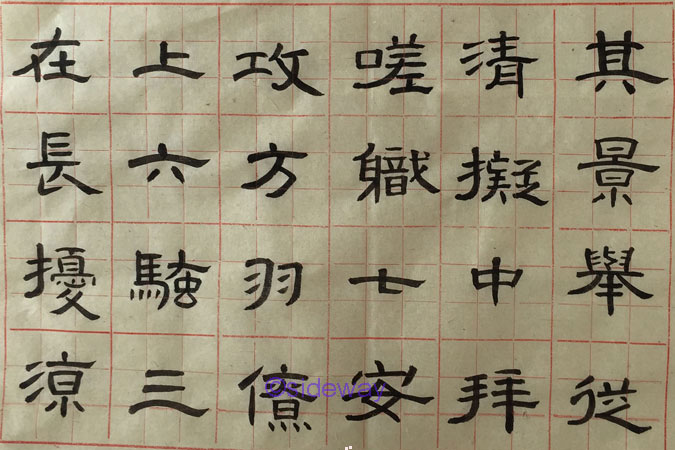 其景舉從
清擬中拜
嗟軄士安
攻方羽僚
上六騷三
在長擾涼
©sideway